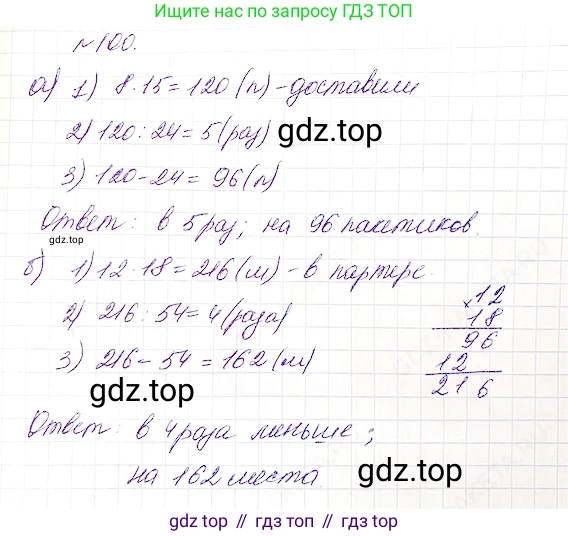 Ищите нас по запросу ГДЗ ТОП
№100.
а) 1) 8·15=120 (п) - доставили
2) 120:24=5 (раз)
gdz.top
3) 120-24=96 (п)
Ответ: в 5 раз; на 96 пакетиков.
gdz.top
б) 1) 12·18=216 (м) - в партере.
2) 216:54=4 (раза)
3) 216-54=162 (м)
×12
18
96
12
216
gdz.top
Ответ: в 4 раза меньше;
на 162 места.
gdz.top
gdz top // гдз топ // гдз.топ